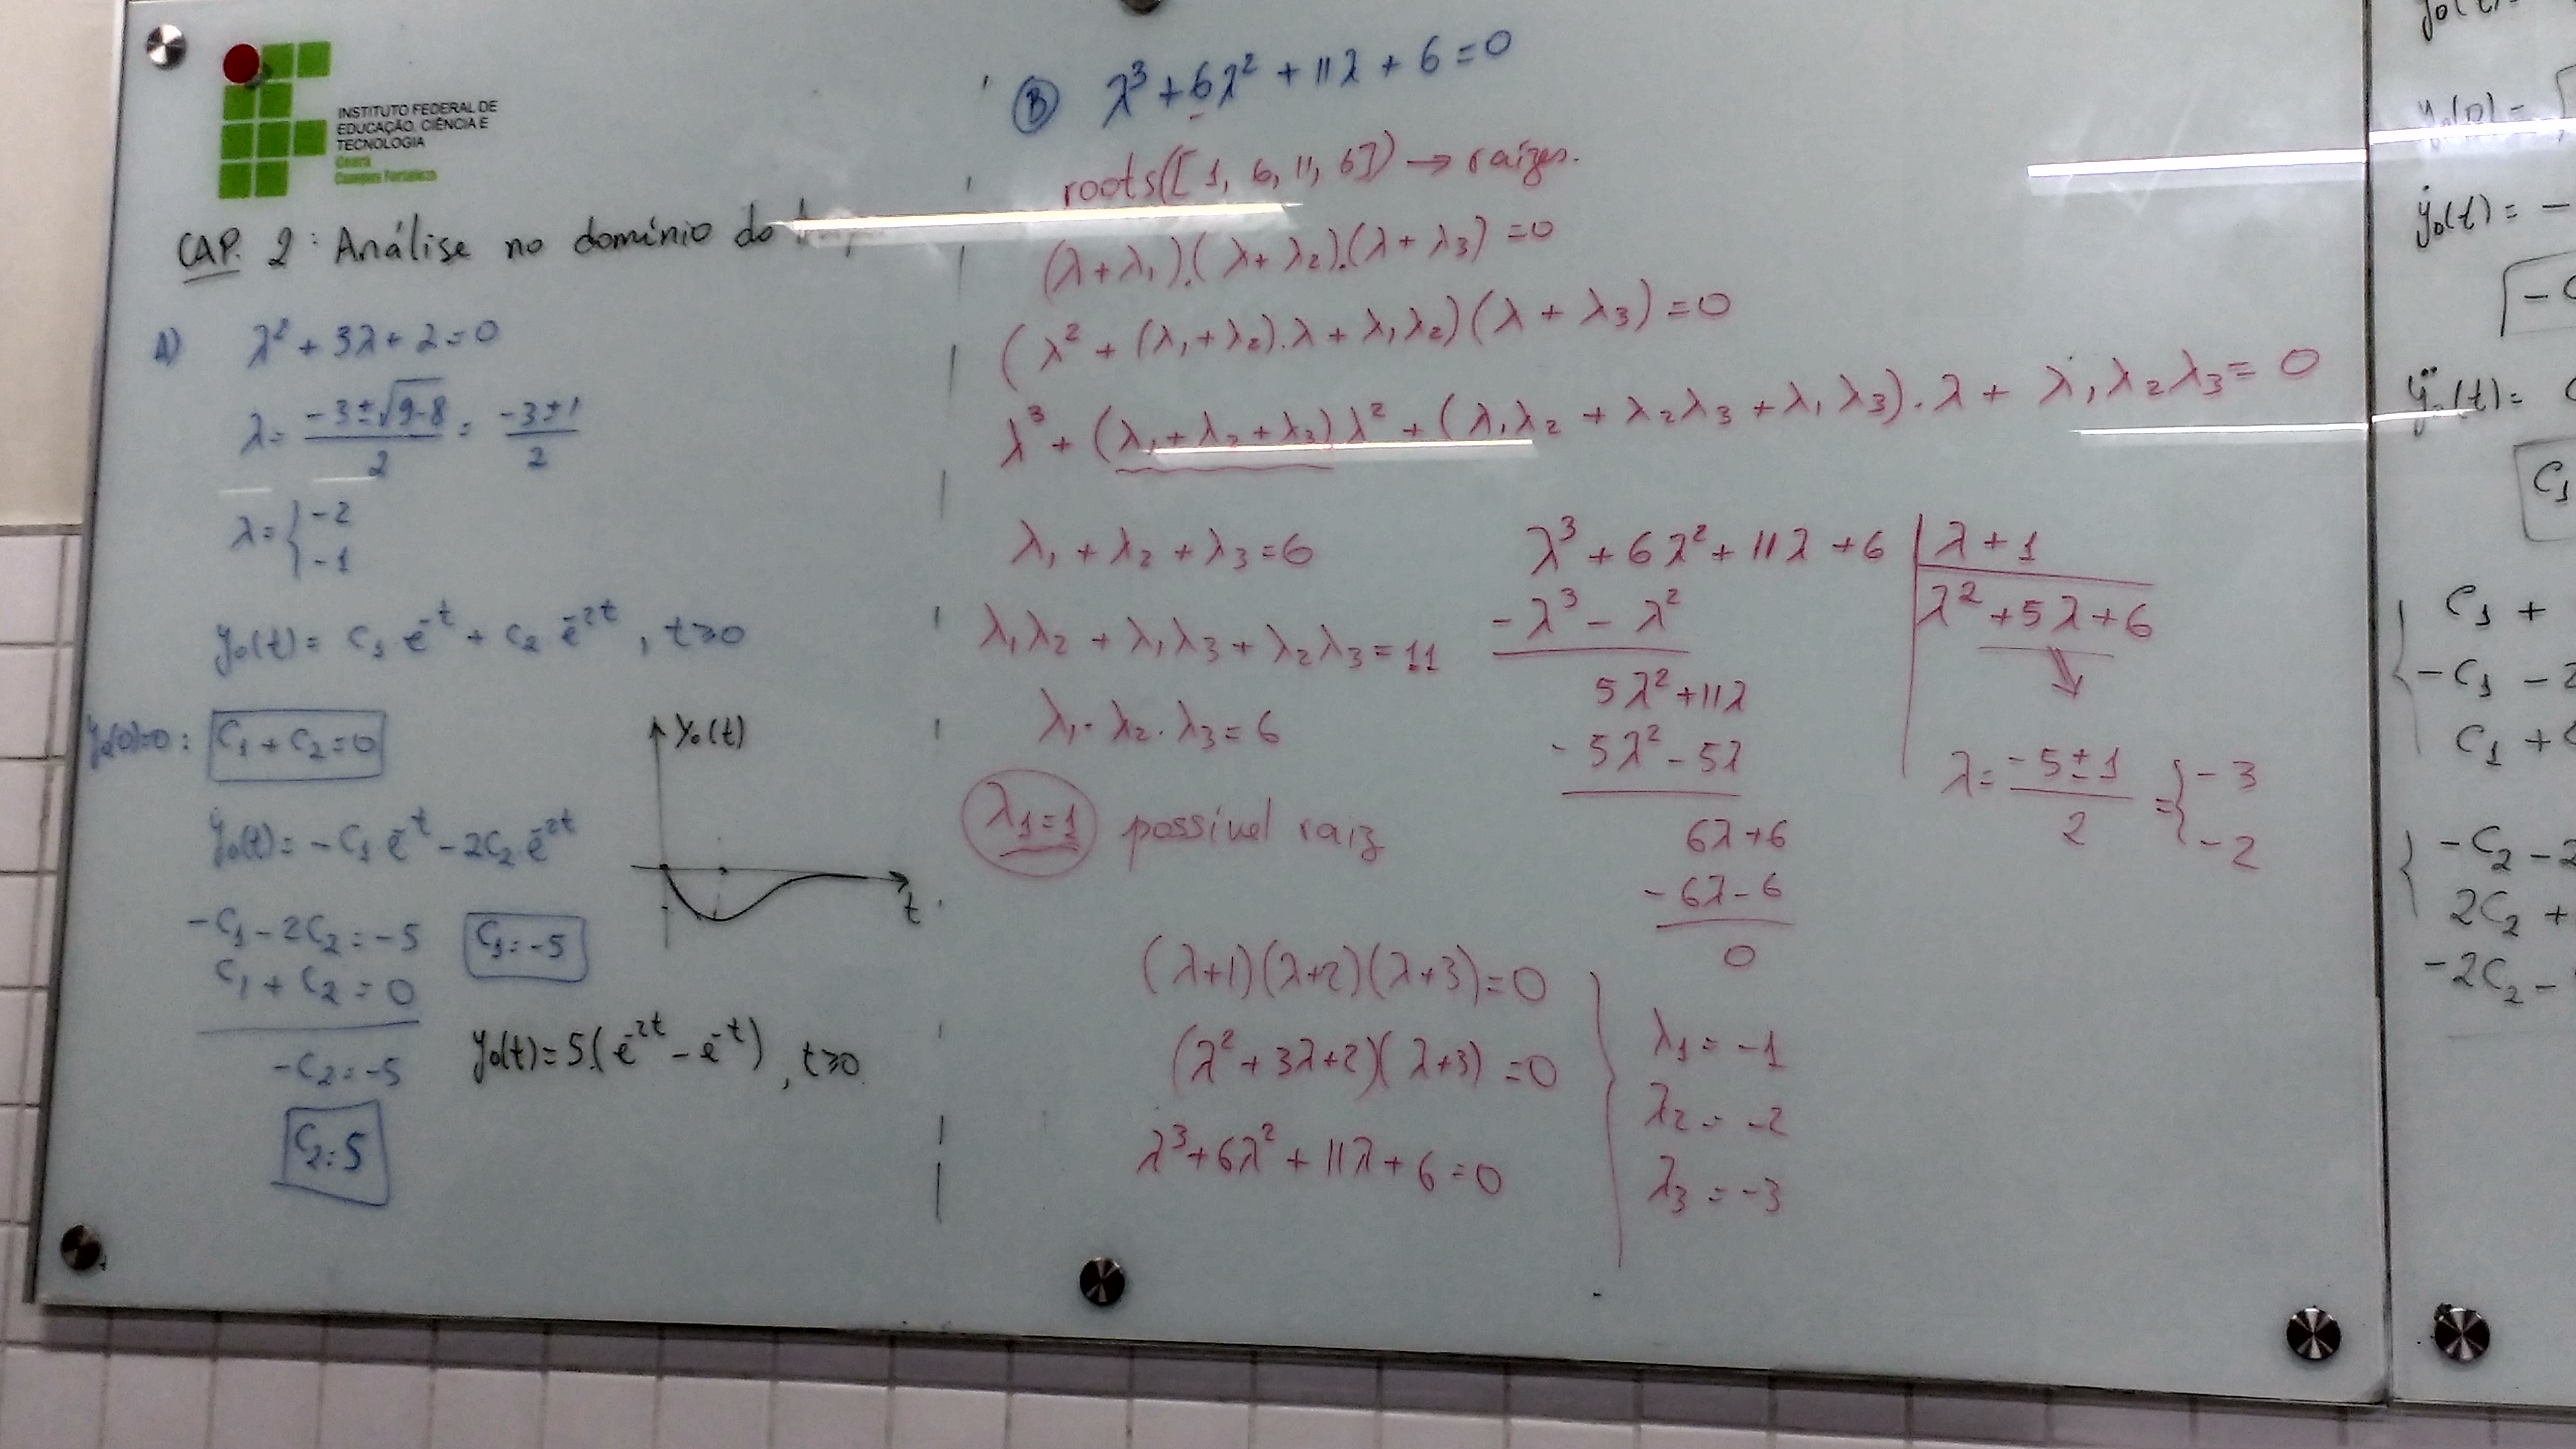 INSTITUTO FEDERAL DE
EDUCAÇÃO, CIÊNCIA E
TECNOLOGIA
Ceará
Campus Fortaleza
CAP. 2: Análise no domínio do
A) λ² + 3λ + 2 = 0
λ = (-3 ± √(9-8))/2 = (-3 ± 1)/2
λ = { -2
-1
y₀(t) = C₁ e^-t + C₂ e^-2t, t≥0
y₀(0)=0: C₁ + C₂ = 0
ẏ₀(t) = -C₁ e^-t - 2C₂ e^-2t
-C₁ - 2C₂ = -5
C₁ + C₂ = 0
-C₂ = -5
C₂ = 5
C₁ = -5
y₀(t)
t
y₀(t) = 5.(e^-2t - e^-t), t≥0
B) λ³ + 6λ² + 11λ + 6 = 0
roots([1, 6, 11, 6]) → raízes.
(λ + λ₁).(λ + λ₂).(λ + λ₃) = 0
(λ² + (λ₁ + λ₂).λ + λ₁λ₂)(λ + λ₃) = 0
λ³ + (λ₁ + λ₂ + λ₃)λ² + (λ₁λ₂ + λ₂λ₃ + λ₁λ₃).λ + λ₁λ₂λ₃ = 0
λ₁ + λ₂ + λ₃ = 6
λ₁λ₂ + λ₁λ₃ + λ₂λ₃ = 11
λ₁.λ₂.λ₃ = 6
λ₁ = 1 possível raiz
λ³ + 6λ² + 11λ + 6 | λ + 1
-λ³ - λ² | λ² + 5λ + 6
5λ² + 11λ
-5λ² - 5λ
6λ + 6
-6λ - 6
0
λ = (-5 ± 1)/2 = { -3
-2
(λ+1)(λ+2)(λ+3) = 0
(λ² + 3λ + 2)(λ+3) = 0
λ³ + 6λ² + 11λ + 6 = 0
λ₁ = -1
λ₂ = -2
λ₃ = -3
y₀(t) =
y₀(0) =
ẏ₀(t) = -
ÿ₀(t) =
C₁
C₁ +
-C₁ - 2
C₁ +
-C₂ - 2
2C₂ +
-2C₂ -